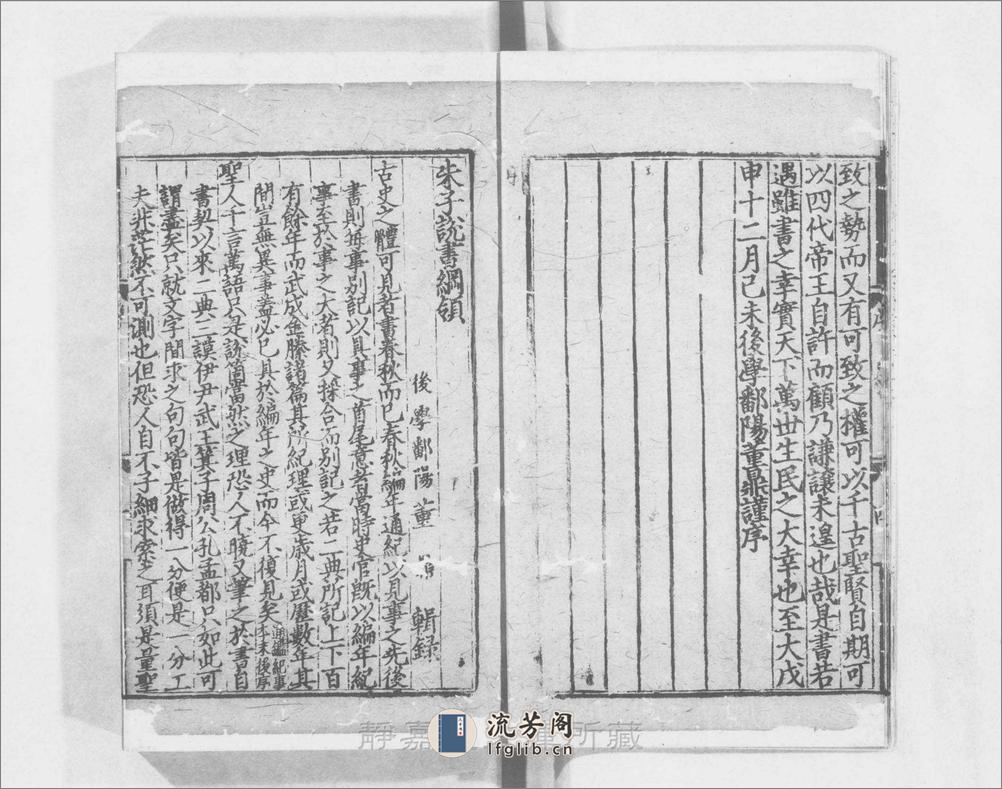 致之勢而又有可致之權可以千古聖賢自期可
以四代帝王自許而顧乃謙讓未遑也哉是書若
遇雖書之幸實天下萬世生民之大幸也至大戊
申十二月己未後學鄱陽董鼎謹序
朱子說書綱領
後學鄱陽董 輯錄
古史之體可見者書春秋而已春秋編年通紀以見事之先後
書則每事別記以具事之首尾意者當時史官旣以編年紀
事至於事之大者則又採合而別記之若二典所記上下百
有餘年而武成金縢諸篇其所紀理或更歲月或歷數年其
間豈無異事蓋必已具於編年之史而今不復見矣通鑑紀事本末後序
聖人千言萬語只是說箇當然之理恐人不曉又筆之於書自
書契以來二典三謨伊尹武王箕子周公孔孟都只如此可
謂盡矣只就文字間求之句句皆是做得一分便是一分工
夫非茫然不可測也但恐人自不子細求索之耳須是量聖
静嘉 所藏
流芳阁
lfglib.cn